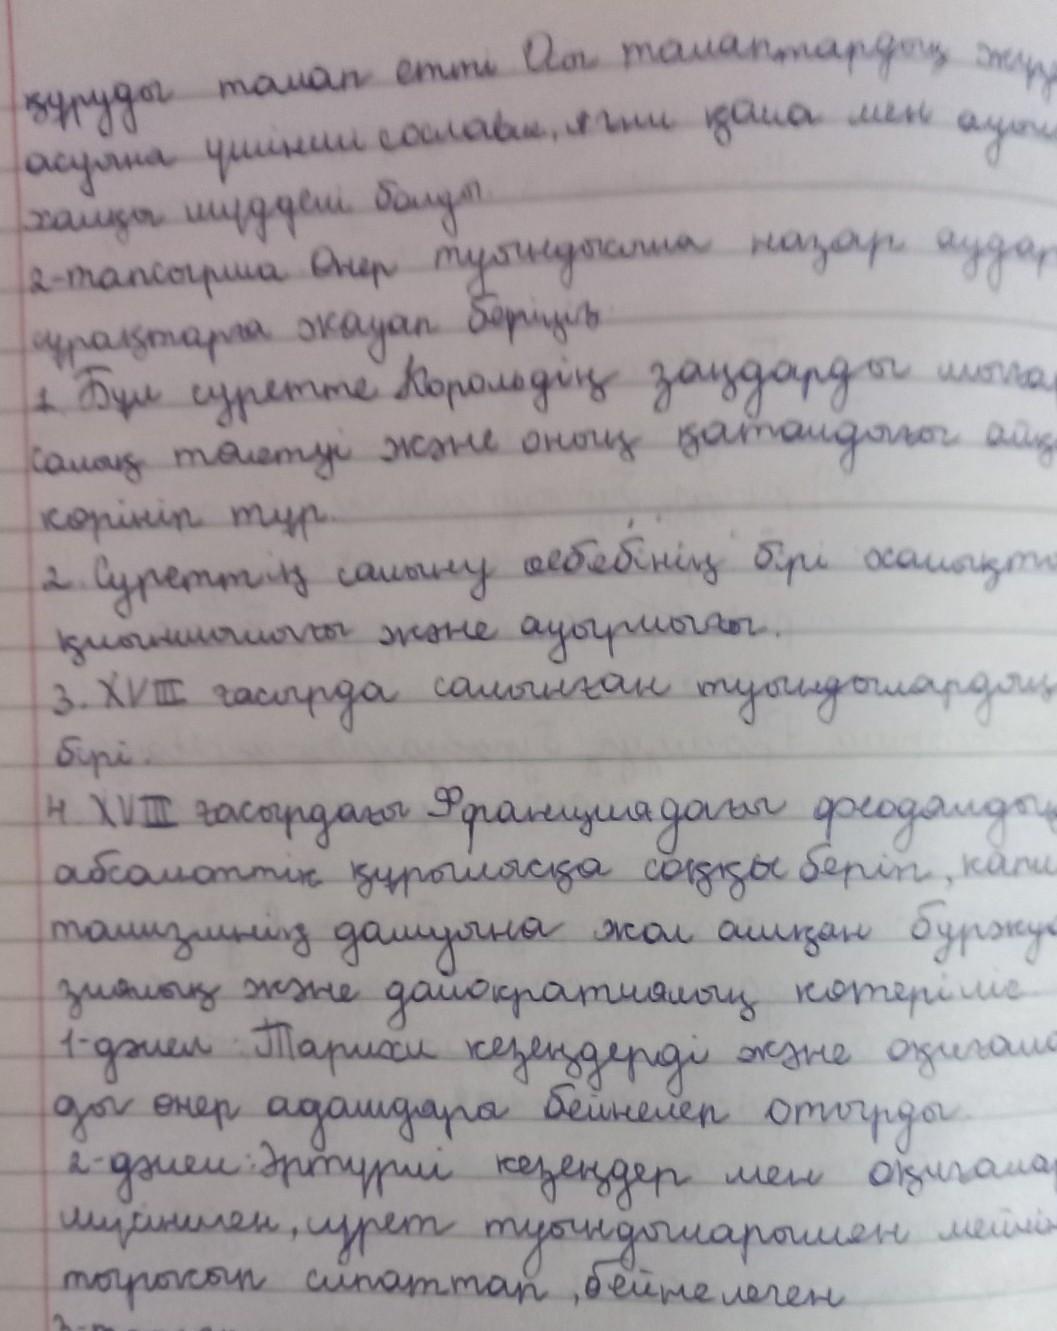 құруды талап етті Осы талаптардың жүз
асуына үшінші сословие, яғни қала мен ауыл
халқы мүдделі болды.
2-тапсырма Өнер туындысына назар аудар
сұрақтарға жауап беріңіз
1. Бұл суретте Корольдің заңдарды шыға
салық төлетуі және оның қаталдығы айқ
көрініп тұр.
2. Суреттің салыну себебінің бірі халықт
қиыншылығы және ауыртығы.
3. XVIII ғасырда салынған туындылардың
бірі.
4 XVIII ғасырдағы Франциядағы феодалдық
абсолюттік құрылысқа соққы беріп, капи
тализмнің дамуына жол ашқан буржуа
зиялық және демократиялық көтеріліс
1-дәлел: Тарихи кезеңдерді және оқиғала
ды өнер адамдары бейнелеп отырды.
2-дәлел: Әртүрлі кезеңдер мен оқиғалар
мүсінмен, сурет туындыларымен
сипаттап, бейнелеген